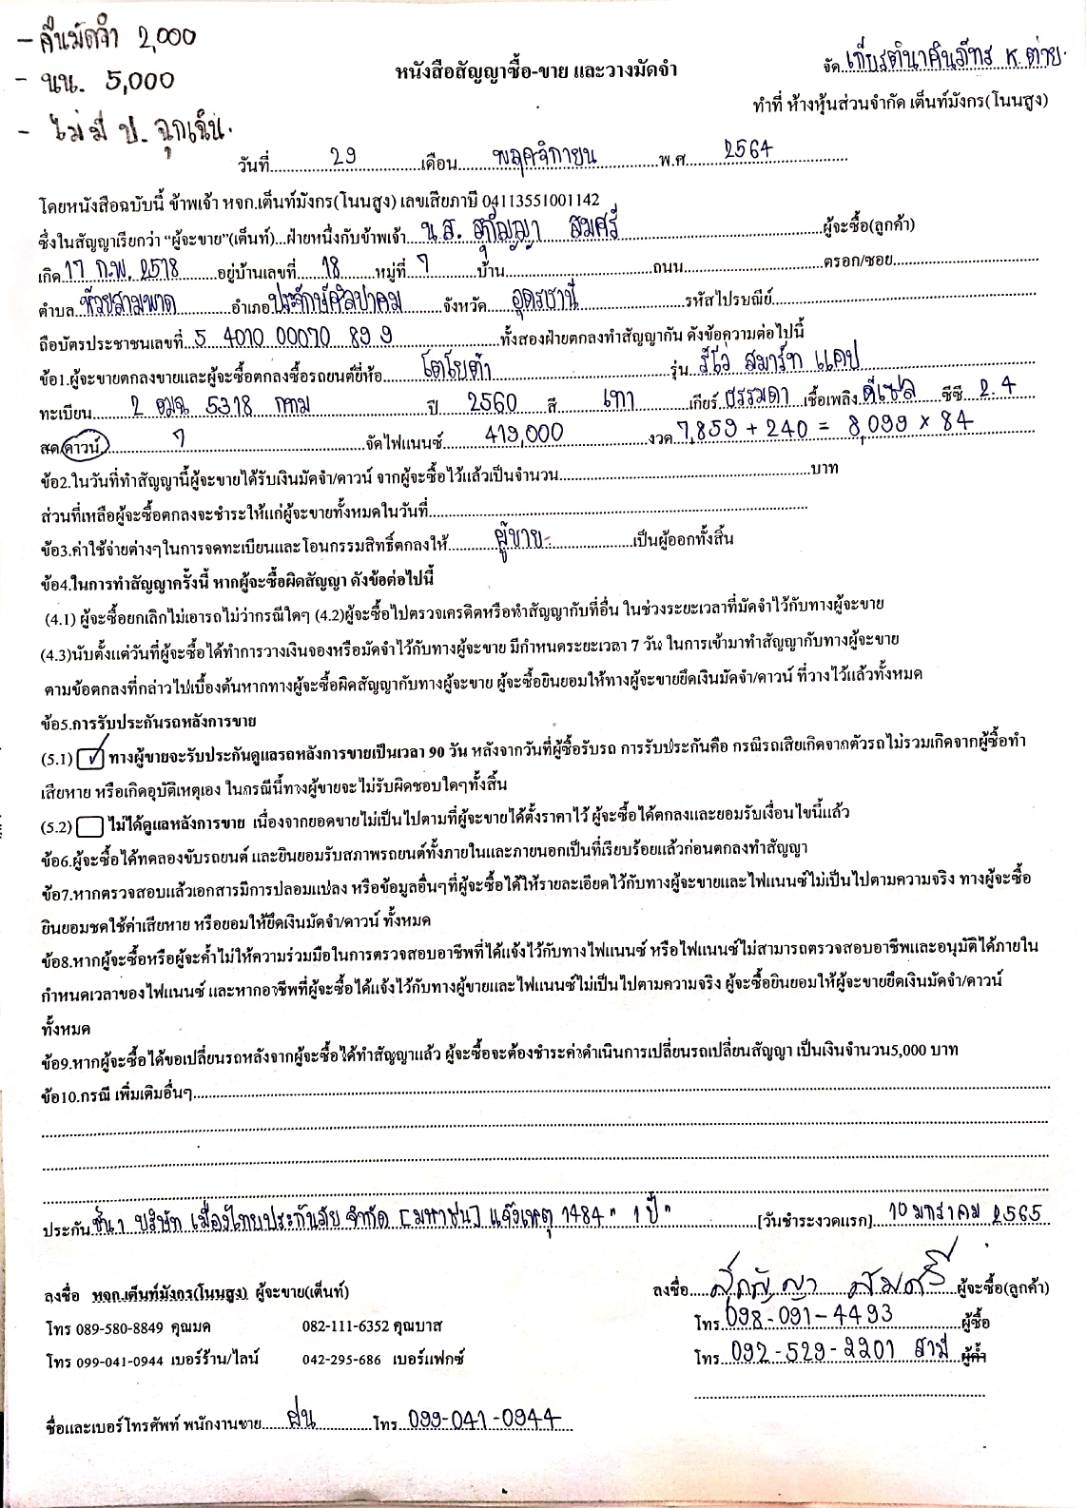 - คืนมัดจำ 2,000
- นน. 5,000
- ไม่มี ป. ฉุกเฉิน.
จัด เกียรตินาคินภัทร K.ต่าย.
หนังสือสัญญาซื้อ-ขาย และวางมัดจำ
ทำที่ ห้างหุ้นส่วนจำกัด เต็นท์มังกร(โนนสูง)
วันที่ 29 เดือน พฤศจิกายน พ.ศ. 2564
โดยหนังสือฉบับนี้ ข้าพเจ้า หจก.เต็นท์มังกร(โนนสูง) เลขเสียภาษี 04113551001142
ซึ่งในสัญญาเรียกว่า "ผู้จะขาย"(เต็นท์)...ฝ่ายหนึ่งกับข้าพเจ้า น.ส. สุกัญญา สมศรี ผู้จะซื้อ(ลูกค้า)
เกิด 17 ก.พ. 2518 อยู่บ้านเลขที่ 18 หมู่ที่ 7 บ้าน ถนน ตรอก/ซอย
ตำบล ห้วยสามพาด อำเภอ ประจักษ์ศิลปาคม จังหวัด อุดรธานี รหัสไปรษณีย์
ถือบัตรประชาชนเลขที่ 5 4010 00070 89 9 ทั้งสองฝ่ายตกลงทำสัญญากัน ดังข้อความต่อไปนี้
ข้อ1.ผู้จะขายตกลงขายและผู้จะซื้อตกลงซื้อรถยนต์ยี่ห้อ โตโยต้า รุ่น รีโว่ สมาร์ท แคป
ทะเบียน 2 ฒฉ 5318 กทม ปี 2560 สี เทา เกียร์ ธรรมดา เชื้อเพลิง ดีเซล ซีซี 2.4
สด/ดาวน์ 7 จัดไฟแนนซ์ 419,000 งวด 7,859 + 240 = 8,099 x 84
ข้อ2.ในวันที่ทำสัญญานี้ผู้จะขายได้รับเงินมัดจำ/ดาวน์ จากผู้จะซื้อไว้แล้วเป็นจำนวน บาท
ส่วนที่เหลือผู้จะซื้อตกลงจะชำระให้แก่ผู้จะขายทั้งหมดในวันที่
ข้อ3.ค่าใช้จ่ายต่างๆในการจดทะเบียนและโอนกรรมสิทธิ์ตกลงให้ ผู้ขาย เป็นผู้ออกทั้งสิ้น
ข้อ4.ในการทำสัญญาครั้งนี้ หากผู้จะซื้อผิดสัญญา ดังข้อต่อไปนี้
(4.1) ผู้จะซื้อยกเลิกไม่เอารถไม่ว่ากรณีใดๆ (4.2)ผู้จะซื้อไปตรวจเครดิตหรือทำสัญญากับที่อื่น ในช่วงระยะเวลาที่มัดจำไว้กับทางผู้จะขาย
(4.3)นับตั้งแต่วันที่ผู้จะซื้อได้ทำการวางเงินจองหรือมัดจำไว้กับทางผู้จะขาย มีกำหนดระยะเวลา 7 วัน ในการเข้ามาทำสัญญากับทางผู้จะขาย
ตามข้อตกลงที่กล่าวไปเบื้องต้นหากทางผู้จะซื้อผิดสัญญากับทางผู้จะขาย ผู้จะซื้อยินยอมให้ทางผู้จะขายยึดเงินมัดจำ/ดาวน์ ที่วางไว้แล้วทั้งหมด
ข้อ5.การรับประกันรถหลังการขาย
(5.1) ✓ ทางผู้ขายจะรับประกันดูแลรถหลังการขายเป็นเวลา 90 วัน หลังจากวันที่ผู้ซื้อรับรถ การรับประกันคือ กรณีรถเสียเกิดจากตัวรถไม่รวมเกิดจากผู้ซื้อทำ
เสียหาย หรือเกิดอุบัติเหตุเอง ในกรณีนี้ทางผู้ขายจะไม่รับผิดชอบใดๆทั้งสิ้น
(5.2) ไม่ได้ดูแลหลังการขาย เนื่องจากยอดขายไม่เป็นไปตามที่ผู้จะขายได้ตั้งราคาไว้ ผู้จะซื้อได้ตกลงและยอมรับเงื่อนไขนี้แล้ว
ข้อ6.ผู้จะซื้อได้ทดลองขับรถยนต์ และยินยอมรับสภาพรถยนต์ทั้งภายในและภายนอกเป็นที่เรียบร้อยแล้วก่อนตกลงทำสัญญา
ข้อ7.หากตรวจสอบแล้วเอกสารมีการปลอมแปลง หรือข้อมูลอื่นๆที่ผู้จะซื้อได้ให้รายละเอียดไว้กับทางผู้จะขายและไฟแนนซ์ไม่เป็นไปตามความจริง ทางผู้จะซื้อ
ยินยอมชดใช้ค่าเสียหาย หรือยอมให้ยึดเงินมัดจำ/ดาวน์ ทั้งหมด
ข้อ8.หากผู้จะซื้อหรือผู้จะค้ำไม่ให้ความร่วมมือในการตรวจสอบอาชีพที่ได้แจ้งไว้กับทางไฟแนนซ์ หรือไฟแนนซ์ไม่สามารถตรวจสอบอาชีพและอนุมัติได้ภายใน
กำหนดเวลาของไฟแนนซ์ และหากอาชีพที่ผู้จะซื้อได้แจ้งไว้กับทางผู้ขายและไฟแนนซ์ไม่เป็นไปตามความจริง ผู้จะซื้อยินยอมให้ผู้จะขายยึดเงินมัดจำ/ดาวน์
ทั้งหมด
ข้อ9.หากผู้จะซื้อได้ขอเปลี่ยนรถหลังจากผู้จะซื้อได้ทำสัญญาแล้ว ผู้จะซื้อจะต้องชำระค่าดำเนินการเปลี่ยนรถเปลี่ยนสัญญา เป็นเงินจำนวน5,000 บาท
ข้อ10.กรณี เพิ่มเติมอื่นๆ
ประกัน ชั้น 1 บริษัท เมืองไทยประกันภัย จำกัด [มหาชน] แจ้งเหตุ 1484 " 1 ปี " [วันชำระงวดแรก] 10 มกราคม 2565
ลงชื่อ หจก.เต็นท์มังกร(โนนสูง) ผู้จะขาย(เต็นท์)
ลงชื่อ สุกัญญา สมศรี ผู้จะซื้อ(ลูกค้า)
โทร 089-580-8849 คุณมด 082-111-6352 คุณบาส
โทร 098-091-4493 ผู้ซื้อ
โทร 099-041-0944 เบอร์ร้าน/ไลน์ 042-295-686 เบอร์แฟกซ์
โทร 092-529-2201 สามี ผู้ค้ำ
ชื่อและเบอร์โทรศัพท์ พนักงานขาย ฝน โทร 099-041-0944